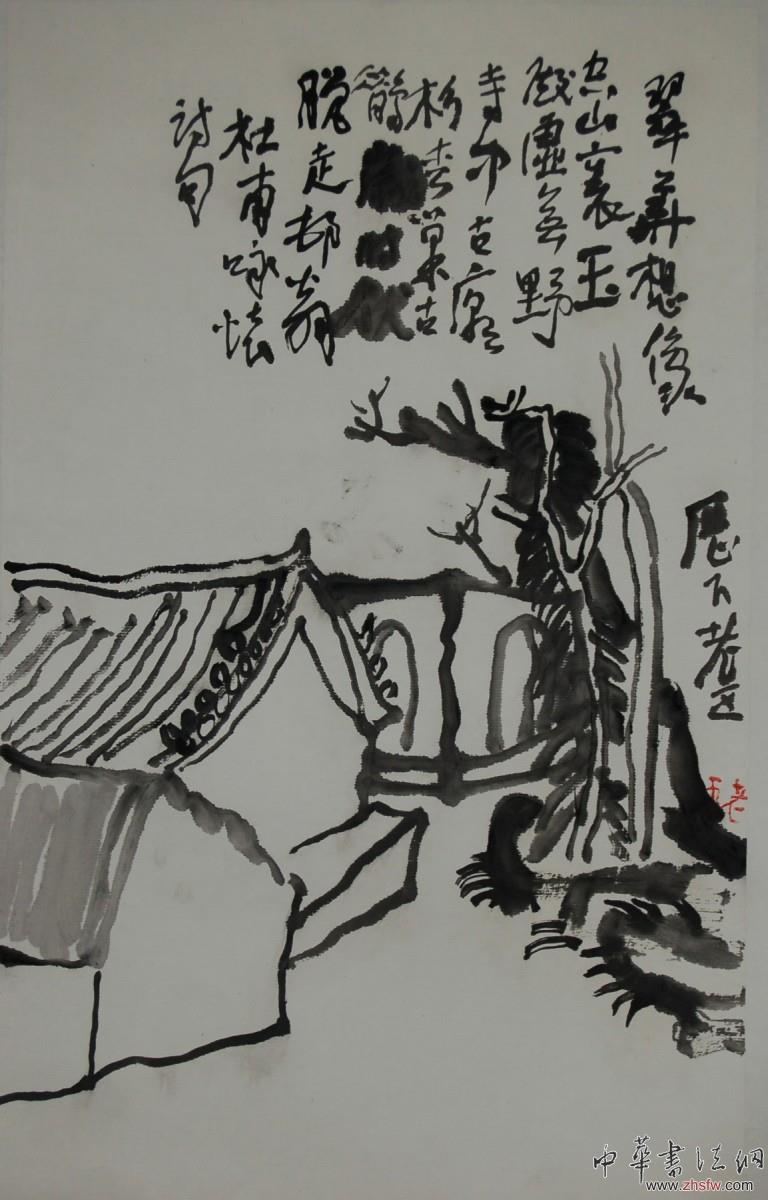 翠華想像
空山裏玉
殿虛無野
寺中古廟
杉枩巢
鶴歲時伏
臘走邨翁
杜甫咏懷
詩句
歷下
中華書法網
www.zhsfw.com